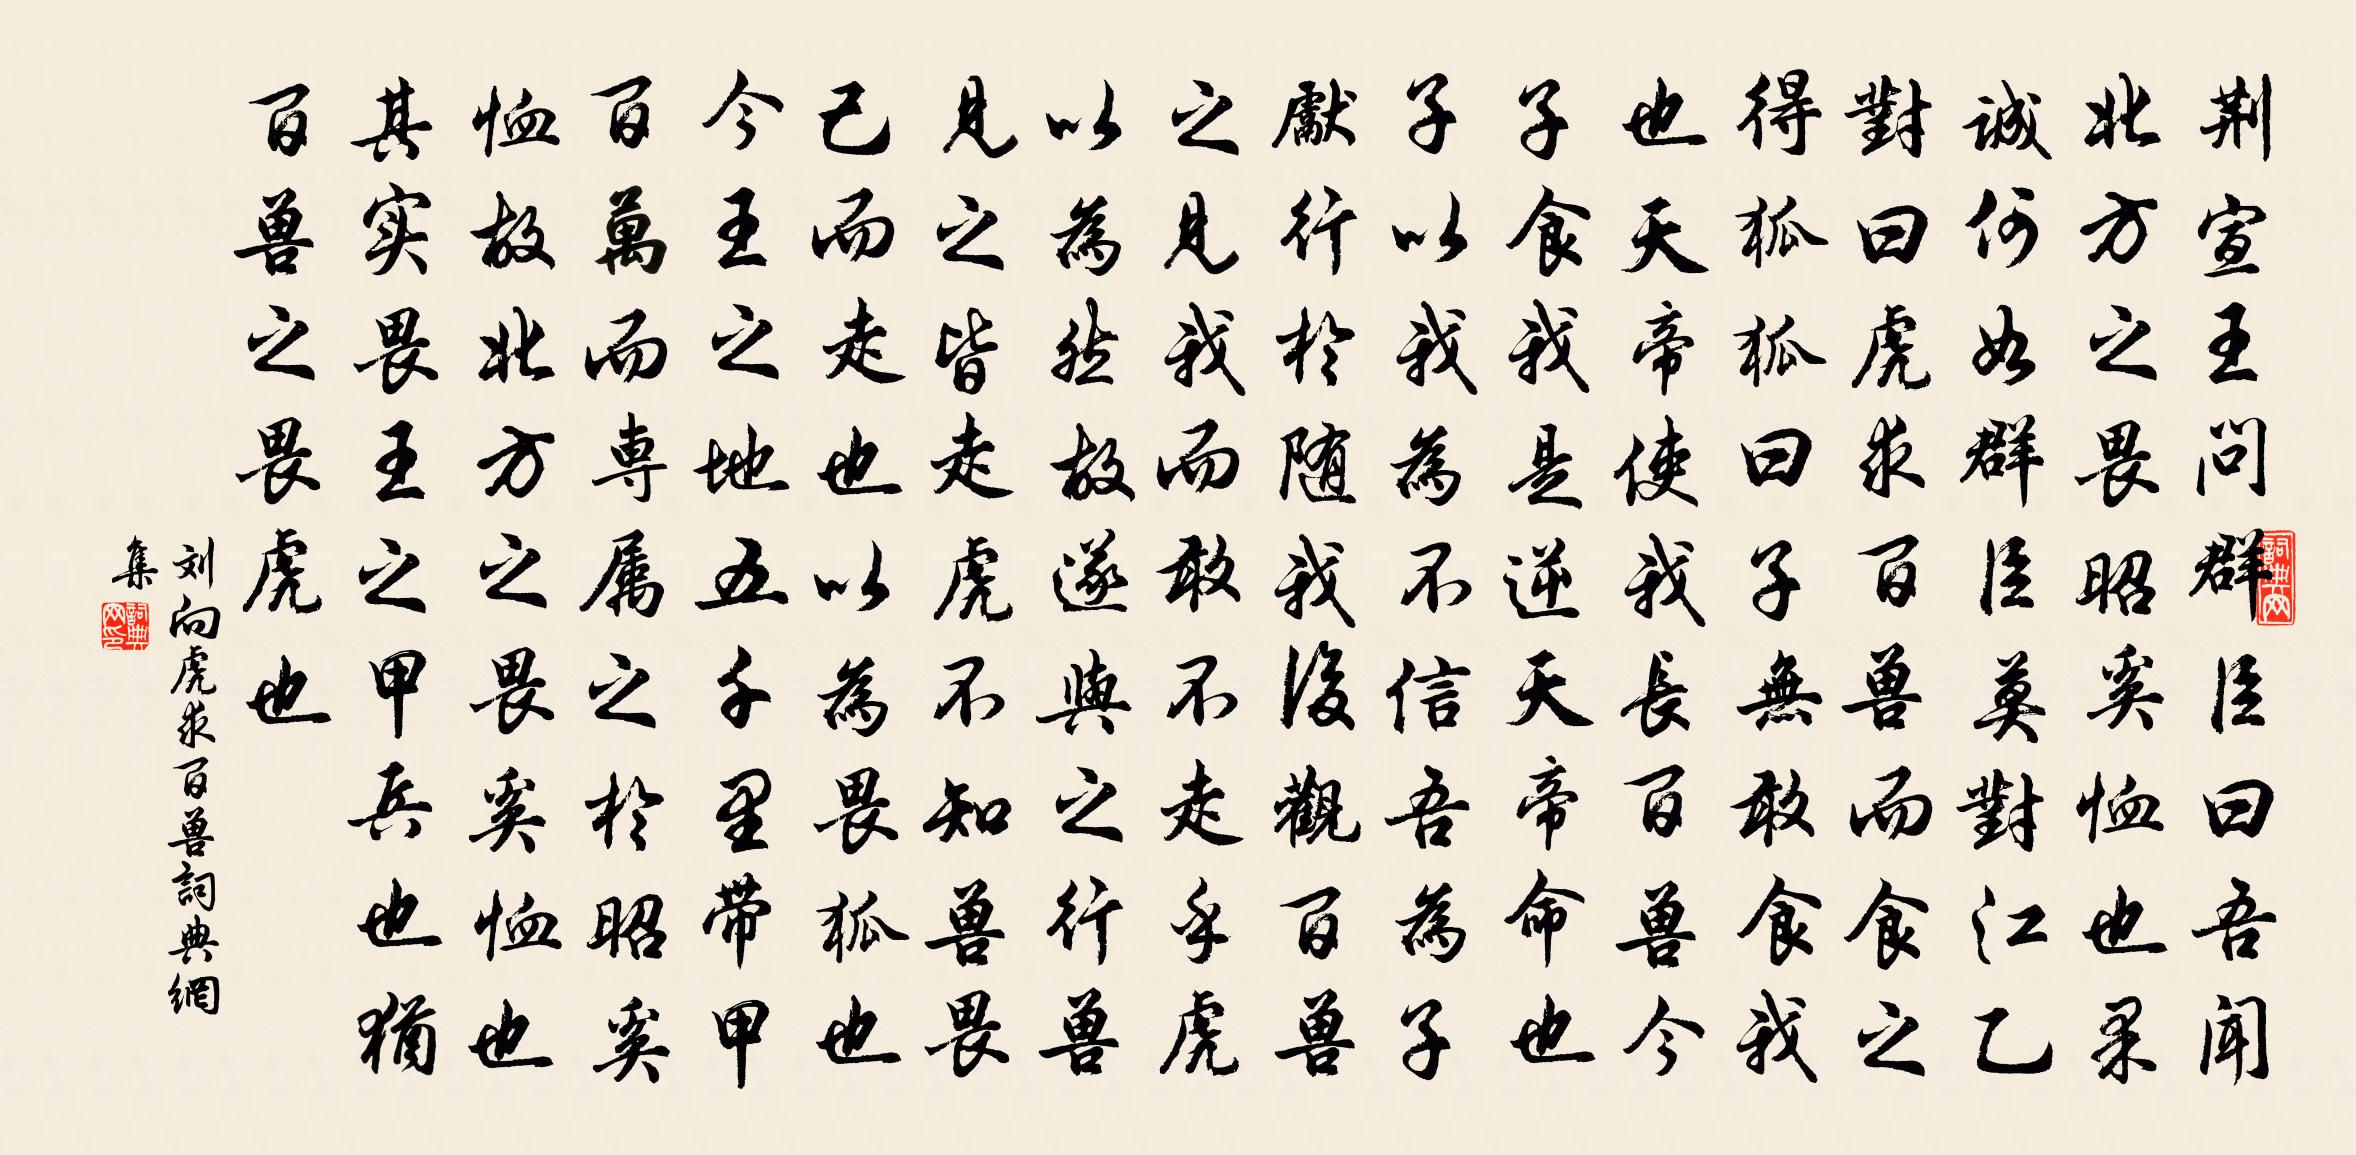 荆宣王問群臣曰吾聞
北方之畏昭奚恤也果
誠何如群臣莫對江乙
對曰虎求百兽而食之
得狐狐曰子無敢食我
也天帝使我長百兽今
子食我是逆天帝命也
子以我為不信吾為子
獻行於随我後觀百兽
之見我而敢不走乎虎
以為然故遂與之行兽
見之皆走虎不知兽畏
己而走也以為畏狐也
今王之地五千里带甲
百萬而専属之於昭奚
恤故北方之畏奚恤也
其实畏王之甲兵也猶
百兽之畏虎也
刘向虎求百兽詞典網
集
詞典网
詞典网印